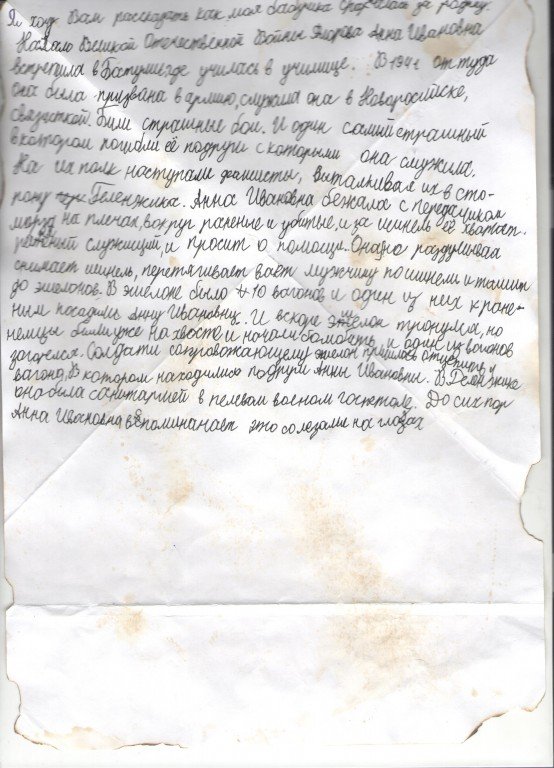 Я хочу Вам рассказать как моя бабушка сражалась за родину.
Начало Великой Отечественной Войны Анна Ивановна
встретила в Батуми, где училась в училище. В 1941 оттуда
она была призвана в армию, служила она в Новоросийске,
связисткой. Были страшные бои. И один самый страшный
в котором погибли её подруги с которыми она служила.
На их полк наступали фашисты, выталкивая их в сто-
рону Геленджика. Анна Ивановна бежала с передатчиком
на плечах, вокруг раненые и убитые, и за шинель её хватает
раненый служищий, и просит о помощи. Она
снимает шинель, перетягивает воет мужчину по шинели и тащит
до эшелонов. В эшелоне было 4 10 вагонов и один из них к ране-
ным посадили Анну Ивановну. И вскоре эшелон тронулся, но
немцы были уже на хвосте и начали бомбить, и один из вагонов
загорелся. Солдату сопровожающему эшелон пришлось отцепить
вагона, в котором находились подруги Анны Ивановны. В
она была санитаркой в полевом военом госпитале. До сих пор
Анна Ивановна вспоминанает это со слезами на глазах